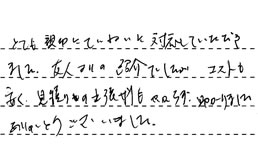 とても親切にていねいに対応していただき
ました。友人からの紹介でしたが、コストも
安く、見積りも出張費も かからず、助かりました
ありがとうございました。